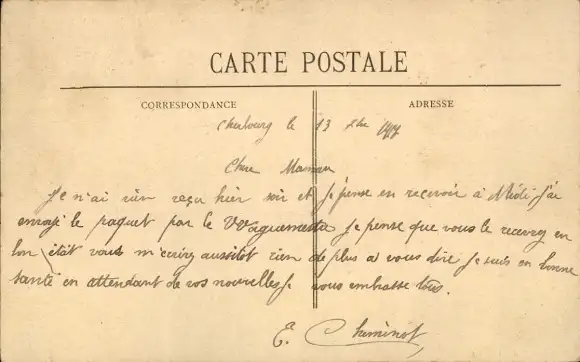 CARTE POSTALE
CORRESPONDANCE
ADRESSE
Cherbourg le 13 Xbre
Chere Maman
Je n'ai rien reçu hier soir et je pense en recevoir à Midi j'ai
envoyé le paquet par le je pense que vous le recevrez en
bon état vous m'ecrirez aussitot rien de plus a vous dire je suis en bonne
santé en attendant de vos nouvelles je vous embrasse tous.
E. Cheminot